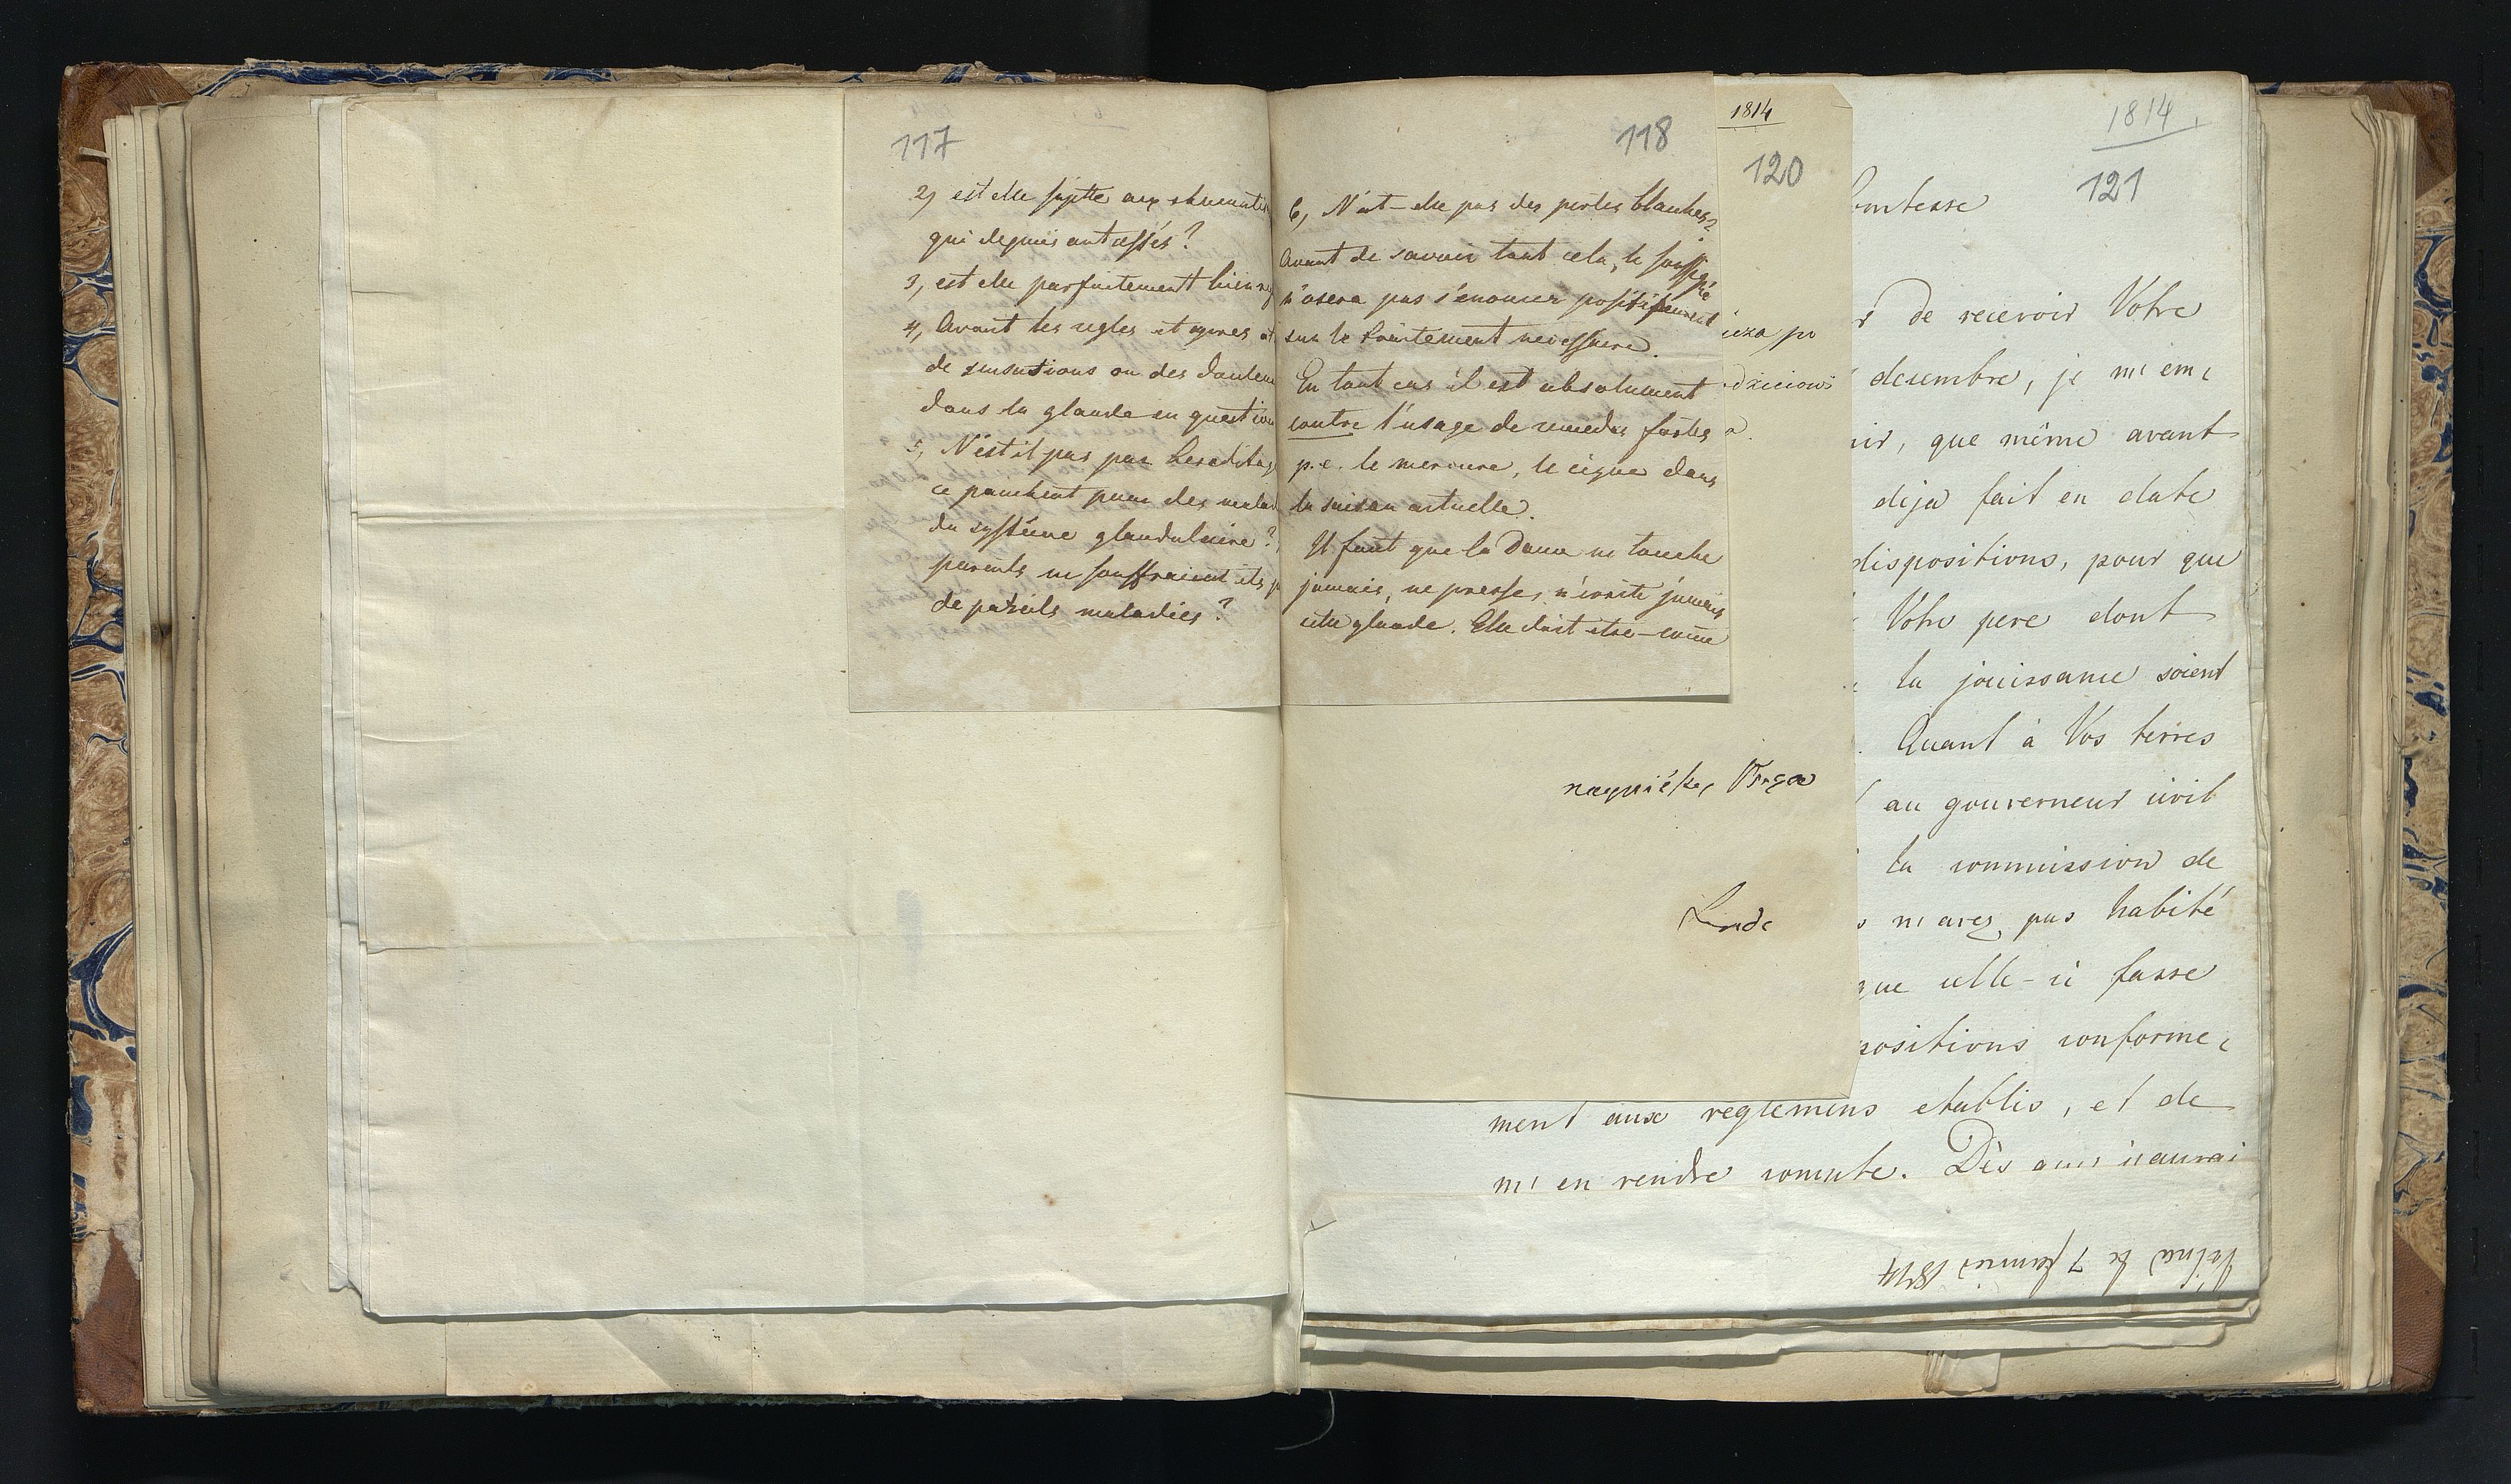 117
2) est elle sujette aux rhumatis
qui depuis ont cessés?
3, est elle parfaitement bien reg
4, Avant les regles et apres at
de sensations ou des douleu
dans la glande en question
5, N'est il pas par heredita
ce penchent pour des malad
du système glandulaire?
parents ne souffraient ils p
de pareils maladies?
118
6, N'at-elle pas des pertes blanches?
Avant de savoir tout cela, le soussigné
n'osera pas s'enoncer positivement
sur le traitement necessaire.
En tout cas il est absolument
contre l'usage de remedes fortes
p.e. le mercure, le cigue dans
la saison actuelle.
Il faut que la Dame ne touche
jamais, ne presse, n'irrite jamais
cette glande. Elle doit etre-come
1814
120
ieza po
dzieiowi
a.
Linde
1814.
121
omtesse
r de recevoir Votre
decembre, je m'em
nir, que même avant
deja fait en date
dispositions, pour que
Votre pere dont
la jouissance soient
. Quant à Vos terres
au gouverneur civil
la commission de
s n'avez pas habité
que celle-ci fasse
positions conforme
ment aux reglemens etablis, et de
m'en rendre compte. Dès que j'aurai
Vilna le 7 fevrier 1814